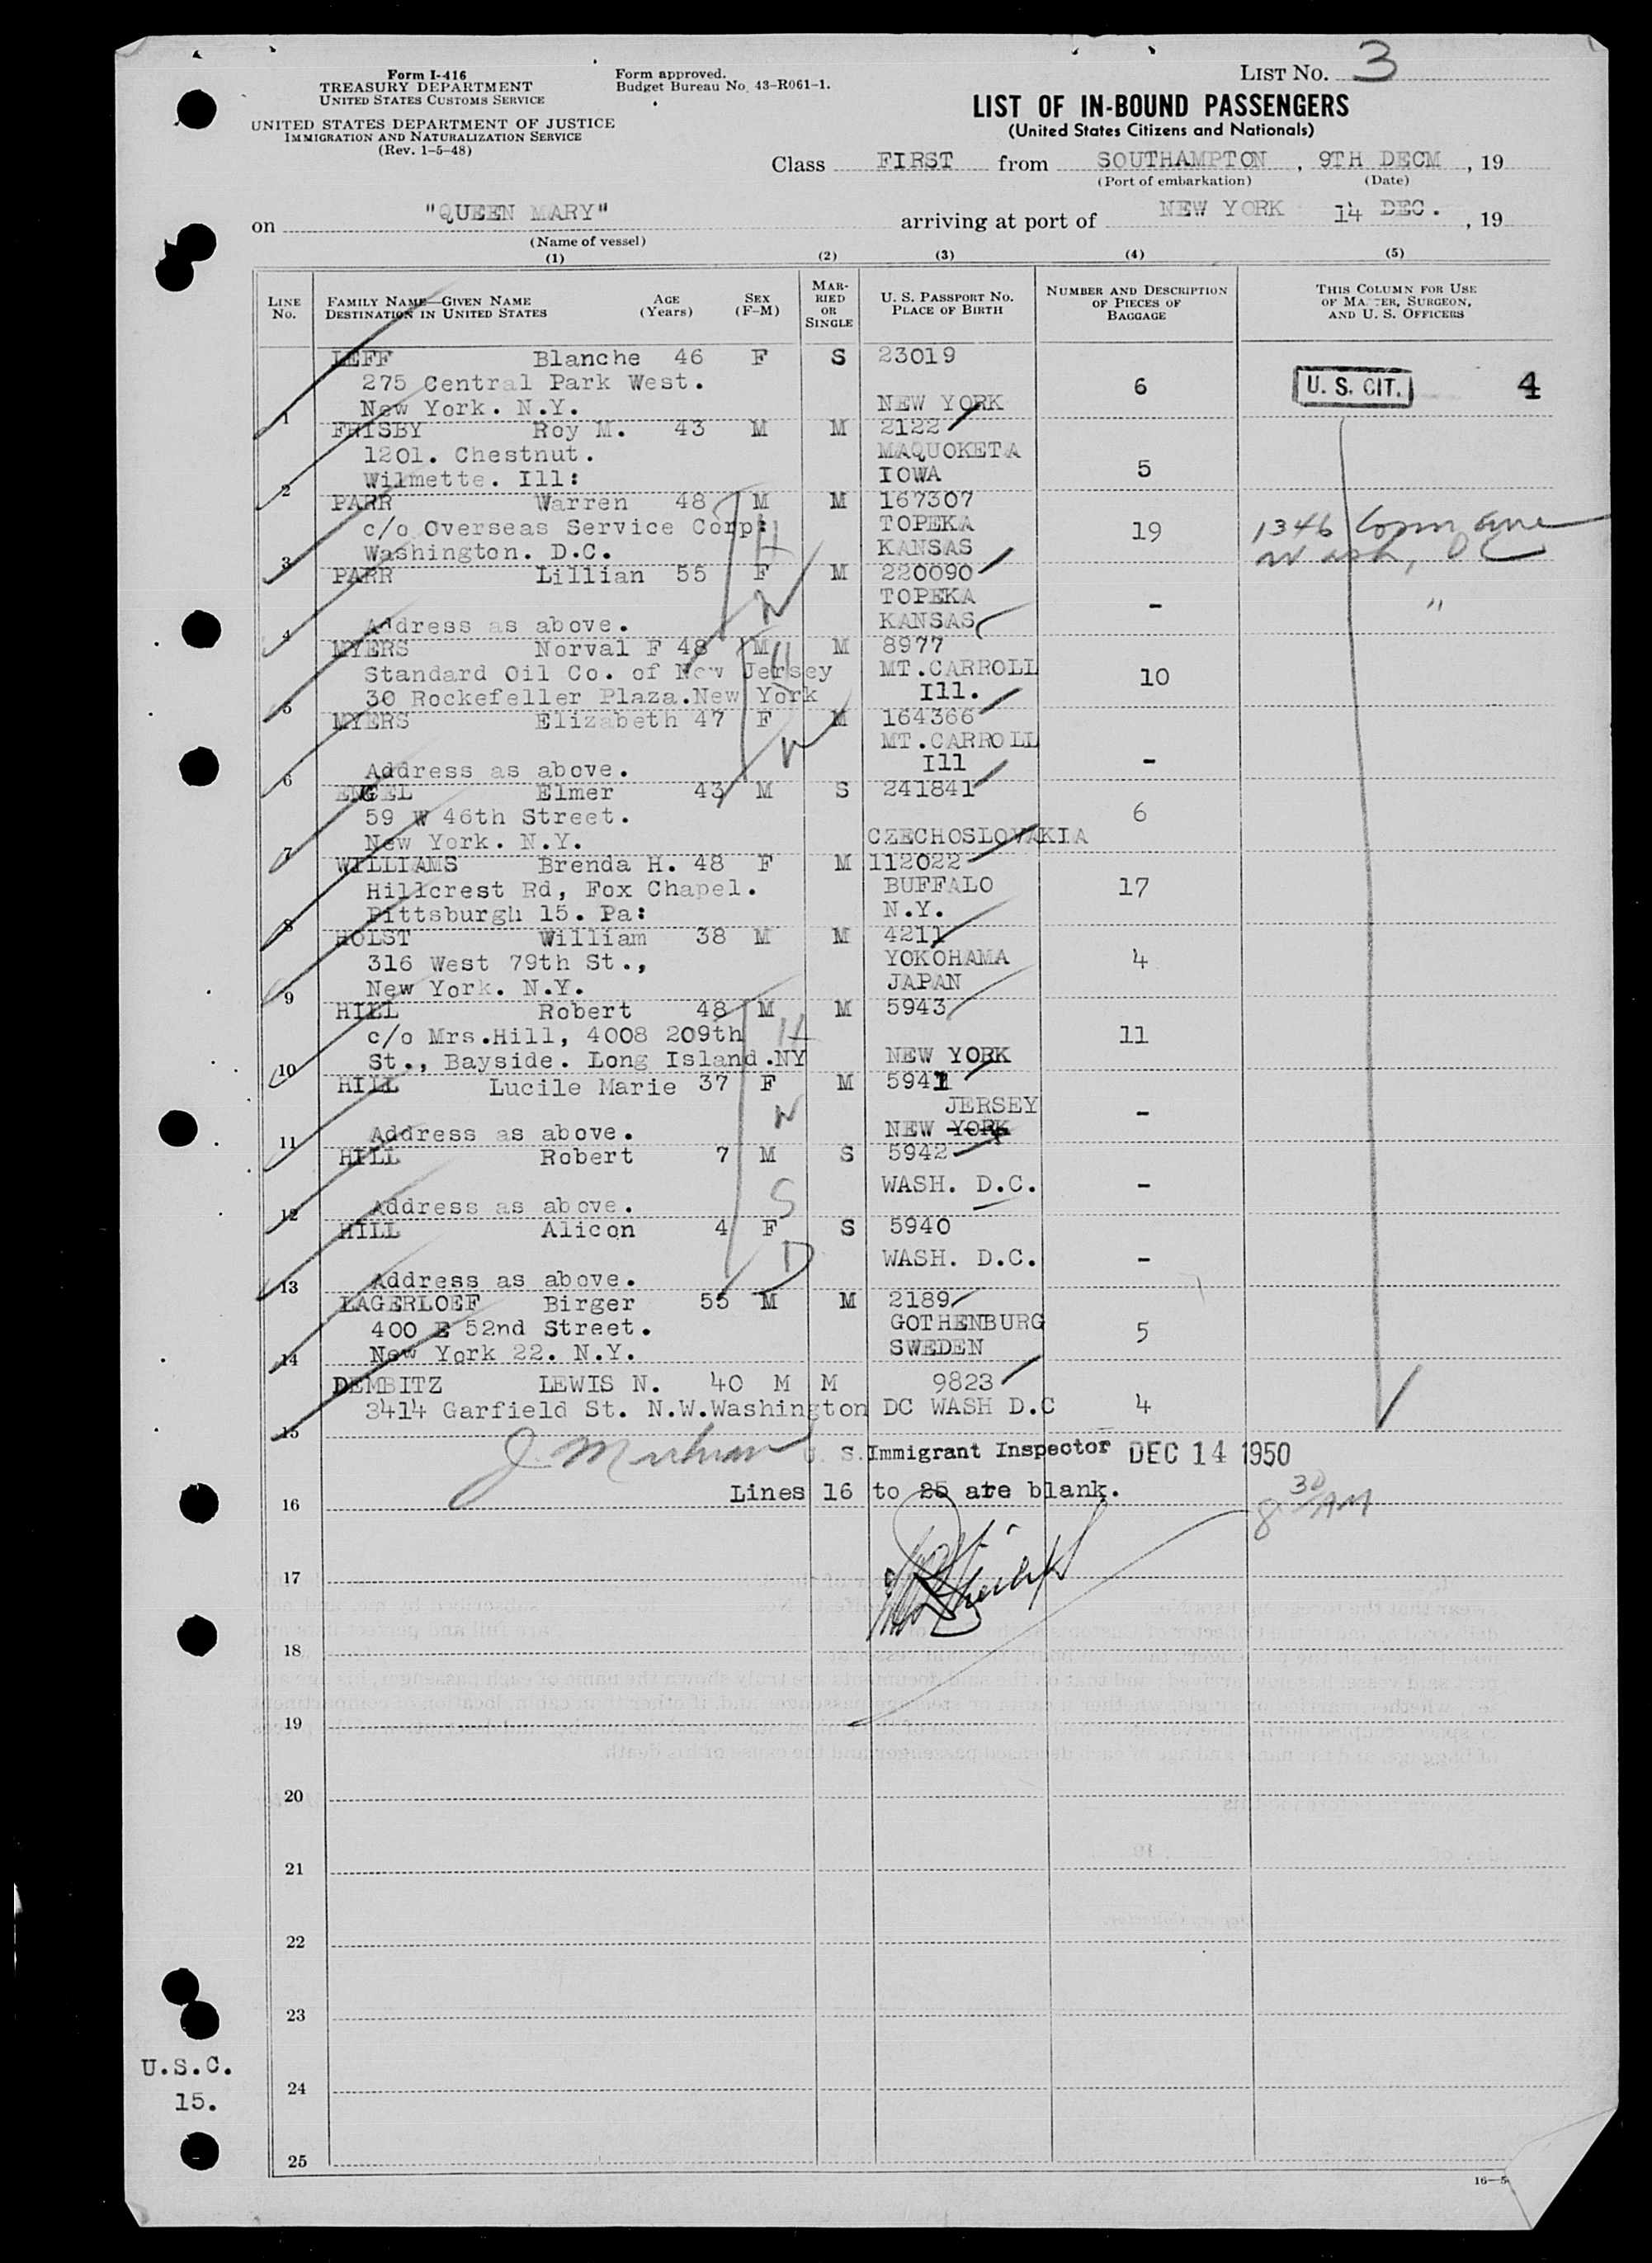 Form I-416
TREASURY DEPARTMENT
UNITED STATES CUSTOMS SERVICE
UNITED STATES DEPARTMENT OF JUSTICE
IMMIGRATION AND NATURALIZATION SERVICE
(Rev. 1-5-48)
Form approved.
Budget Bureau No. 43-R061-1.
LIST NO. 3
LIST OF IN-BOUND PASSENGERS
(United States Citizens and Nationals)
Class FIRST from SOUTHAMPTON, 9TH DECM, 19
(Port of embarkation) (Date)
on "QUEEN MARY" arriving at port of NEW YORK 14 DEC., 19
(Name of vessel)
(1) (2) (3) (4) (5)
LINE NO.
FAMILY NAME—GIVEN NAME
DESTINATION IN UNITED STATES
AGE (Years)
SEX (F-M)
MARRIED OR SINGLE
U. S. PASSPORT NO.
PLACE OF BIRTH
NUMBER AND DESCRIPTION OF PIECES OF BAGGAGE
THIS COLUMN FOR USE OF MASTER, SURGEON, AND U. S. OFFICERS
LEFF Blanche 46 F S 23019
275 Central Park West. 6 U. S. CIT. 4
1 New York. N.Y. NEW YORK
FRISBY Roy M. 43 M M 2122
1201. Chestnut. MAQUOKETA
2 Wilmette. Ill: IOWA 5
PARR Warren 48 M M 167307
c/o Overseas Service Corp: H TOPEKA 19 1346 Conn Ave
3 Washington. D.C. KANSAS Wash, DC
PARR Lillian 55 F M 220090
W TOPEKA - "
4 Address as above. KANSAS
MYERS Norval F 48 M M 8977
Standard Oil Co. of New Jersey H MT.CARROLL 10
5 30 Rockefeller Plaza.New York Ill.
MYERS Elizabeth 47 F M 164366
W MT.CARROLL
6 Address as above. Ill -
ENGEL Elmer 43 M S 241841
59 W 46th Street. 6
7 New York. N.Y. CZECHOSLOVAKIA
WILLIAMS Brenda H. 48 F M 112022
Hillcrest Rd, Fox Chapel. BUFFALO 17
8 Pittsburgh 15. Pa: N.Y.
HOLST William 38 M M 4211
316 West 79th St., YOKOHAMA 4
9 New York. N.Y. JAPAN
HILL Robert 48 M M 5943
c/o Mrs.Hill, 4008 209th H 11
10 St., Bayside. Long Island.NY NEW YORK
HILL Lucile Marie 37 F M 5941
W JERSEY -
11 Address as above. NEW YORK
HILL Robert 7 M S 5942
S WASH. D.C. -
12 Address as above.
HILL Alicon 4 F S 5940
D WASH. D.C. -
13 Address as above.
LAGERLOEF Birger 55 M M 2189
400 E 52nd Street. GOTHENBURG 5
14 New York 22. N.Y. SWEDEN
DEMBITZ LEWIS N. 40 M M 9823
3414 Garfield St. N.W.Washington DC WASH D.C 4
15
U. S. Immigrant Inspector DEC 14 1950
Lines 16 to 25 are blank.
8 30 AM
16
17
18
19
20
21
22
23
24
25
U.S.C.
15.